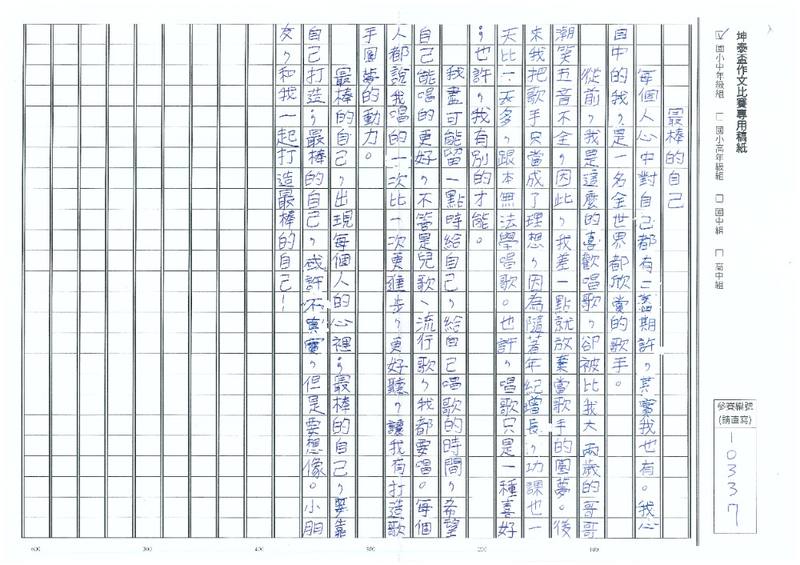 坤泰盃作文比賽專用稿紙
☑ 國小中年級組 □ 國小高年級組 □ 國中組 □ 高中組
參賽編號
(請直寫)
10337
最棒的自己
每個人心中對自己都有一番期許，其實我也有。我心
目中的我，是一名全世界都欣賞的歌手。
從前，我是這麼的喜歡唱歌，卻被比我大兩歲的哥哥
潮笑五音不全，因此，我差一點就放棄當歌手的圓夢。後
來我把歌手只當成了理想，因為隨著年紀增長，功課也一
天比一天多，跟本無法學唱歌。也許，唱歌只是一種喜好
，也許，我有別的才能。
我盡可能留一點時給自己，給自己唱歌的時間，希望
自己能唱的更好，不管是兒歌、流行歌，我都要唱。每個
人都說我唱的一次比一次更進步，更好聽，讓我有打造歌
手圓夢的動力。
最棒的自己，出現每個人的心裡，最棒的自己，要靠
自己打造，最棒的自己，或許不真實，但是要想像。小朋
友，和我一起打造最棒的自己！
600
500
400
300
200
100